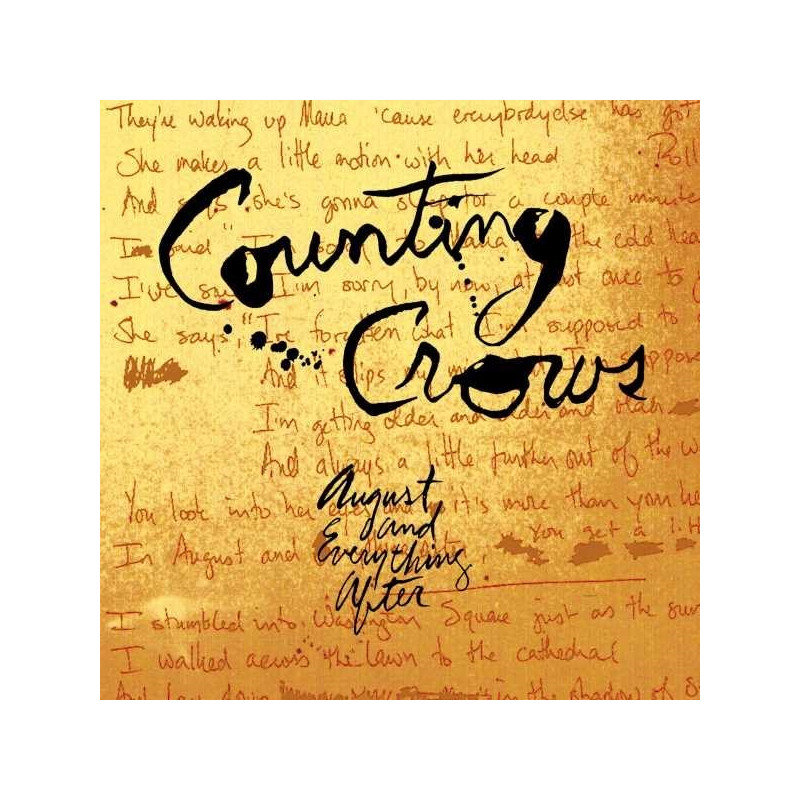 They're waking up Maria 'cause everybody else has got
She makes a little motion with her head
Roll
And says she's gonna a couple minute
I'm said" I'm to Maria the cold
I've I'm sorry, by now, at once to
She says, "I've forgotten what I'm supposed to
And it slips my I'm suppose
I'm getting older and older and older
And always a little further out of the w
You look into her eyes and it's more than your he
In August and
You get a litt
I stumbled into Washington Square just as the sun
I walked across the lawn to the cathedral
And lay down in the shadow of S
Counting
Crows
August
and
Everything
After